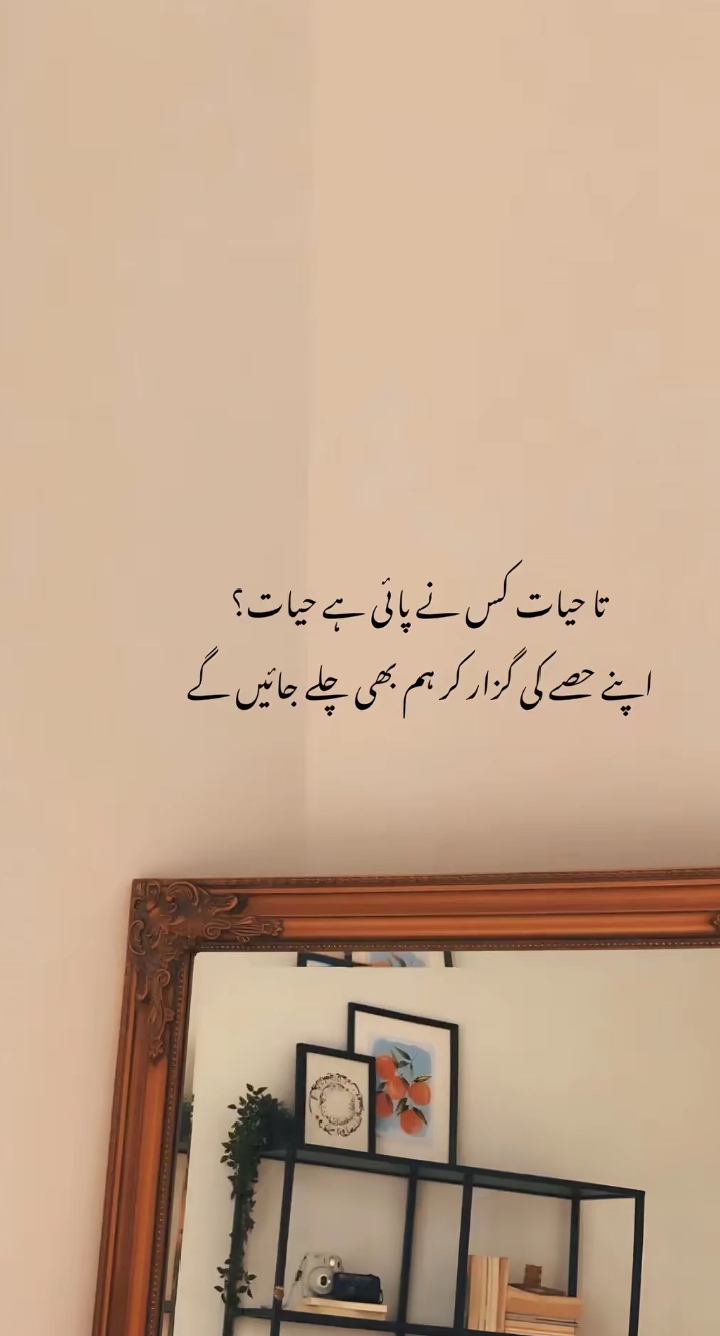 تا حیات کس نے پائی ہے حیات؟
اپنے حصے کی گزار کر ہم بھی چلے جائیں گے